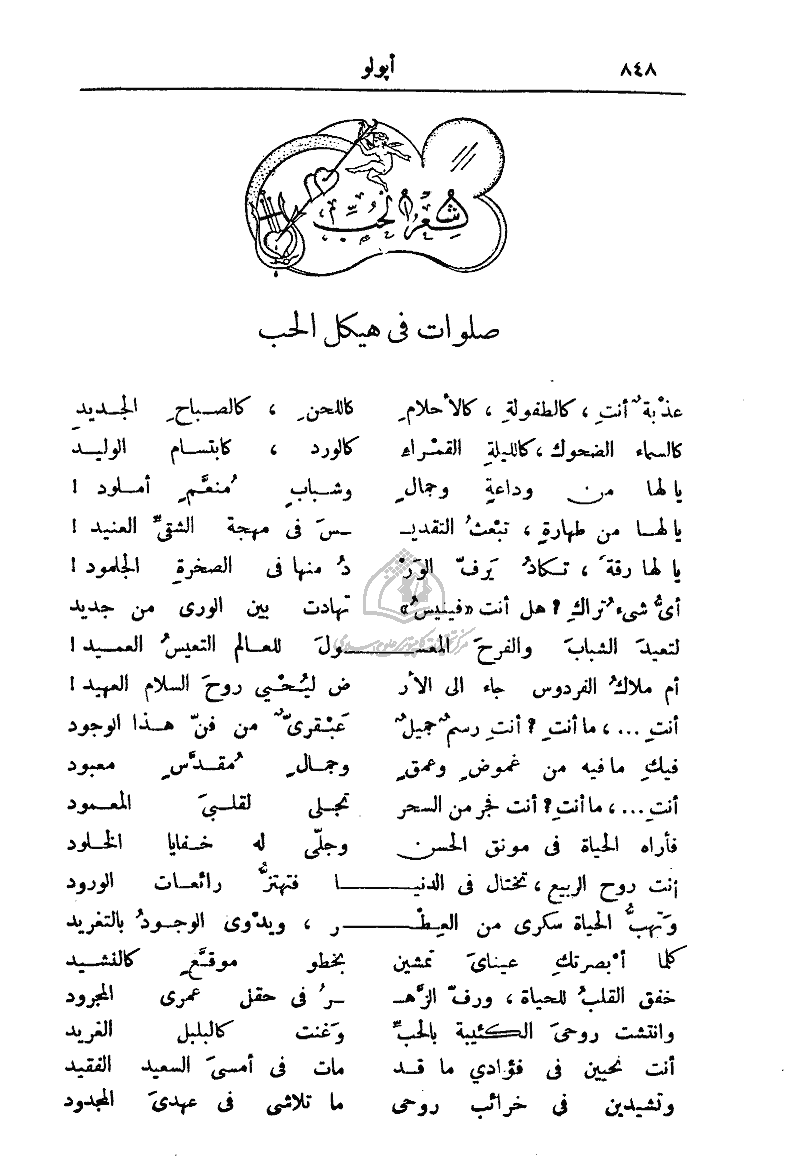 ٨٤٨ أپولو
شعر الحب
صلوات فى هيكل الحب
عذْبةٌ أنتِ ، كالطفولةِ ، كالأحلامِ كاللحنِ ، كالصباحِ الجديدِ
كالسماء الضحوك ، كالليلةِ القمْراءِ كالورد ، كابتسام الوليد
يا لها من وداعةٍ وجمالٍ وشبابٍ مُنعَّمٍ أملود !
يا لها من طهارةٍ ، تبْعثُ التقديـ ـسَ فى مهجة الشقىِّ العنيد !
يا لها رقةً ، تكادُ يَرفّ الوَرْ دُ منها فى الصخرةِ الجلمود !
أىُّ شىء تُراكِ ؟ هل أنت «فينيسُ» تهادت بين الورى من جديد
لتعيدَ الشبابَ والفرحَ المعسـولَ للعالم التعيسِ العميد !
أم ملاكُ الفردوس جاء الى الأر ض ليُحْيي روحَ السلام العهيد !
أنتِ ... ، ما أنتِ ؟ أنتِ رسمٌ جميلٌ عَبْقرىٌّ من فنّ هـذا الوجود
فيكِ ما فيه من غموضٍ وعمقٍ وجمالٍ مُقدَّسٍ معبود
أنتِ ... ، ما أنتِ ؟ أنت فجر من السحر تجلى لقلبىَ المعمود
فأراه الحياة فى مونق الحسن وجلّى له خفايا الخلود
أنت روح الربيع ، تختال فى الدنيـا فتهتزُّ رائعات الورود
وتَهبُّ الحياة سكرى من العِطْـر ، ويدْوى الوجودُ بالتغريد
كلما أبصرتكِ عيناىَ تمشين بخطو موقَّعٍ كالنشيد
خفق القلبُ للحياة ، ورفّ الزَّهـ ـرُ فى حقل عمرى المجرود
وانتشت روحىَ الكئيبة بالحبِّ وغَنت كالبلبل الغريد
أنت تحيين فى فؤادي ما قد مات فى أمسىَ السعيد الفقيد
وتشيدين فى خرائب روحى ما تلاشى فى عهدىَ المجدود